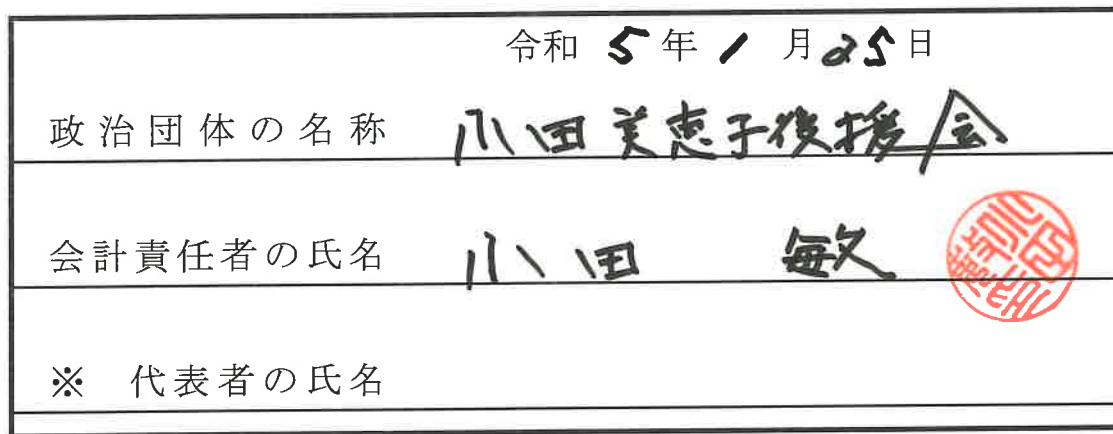 令和 5年 1月25日
政治団体の名称 小田美恵子後援会
会計責任者の氏名 小田 敏
※ 代表者の氏名